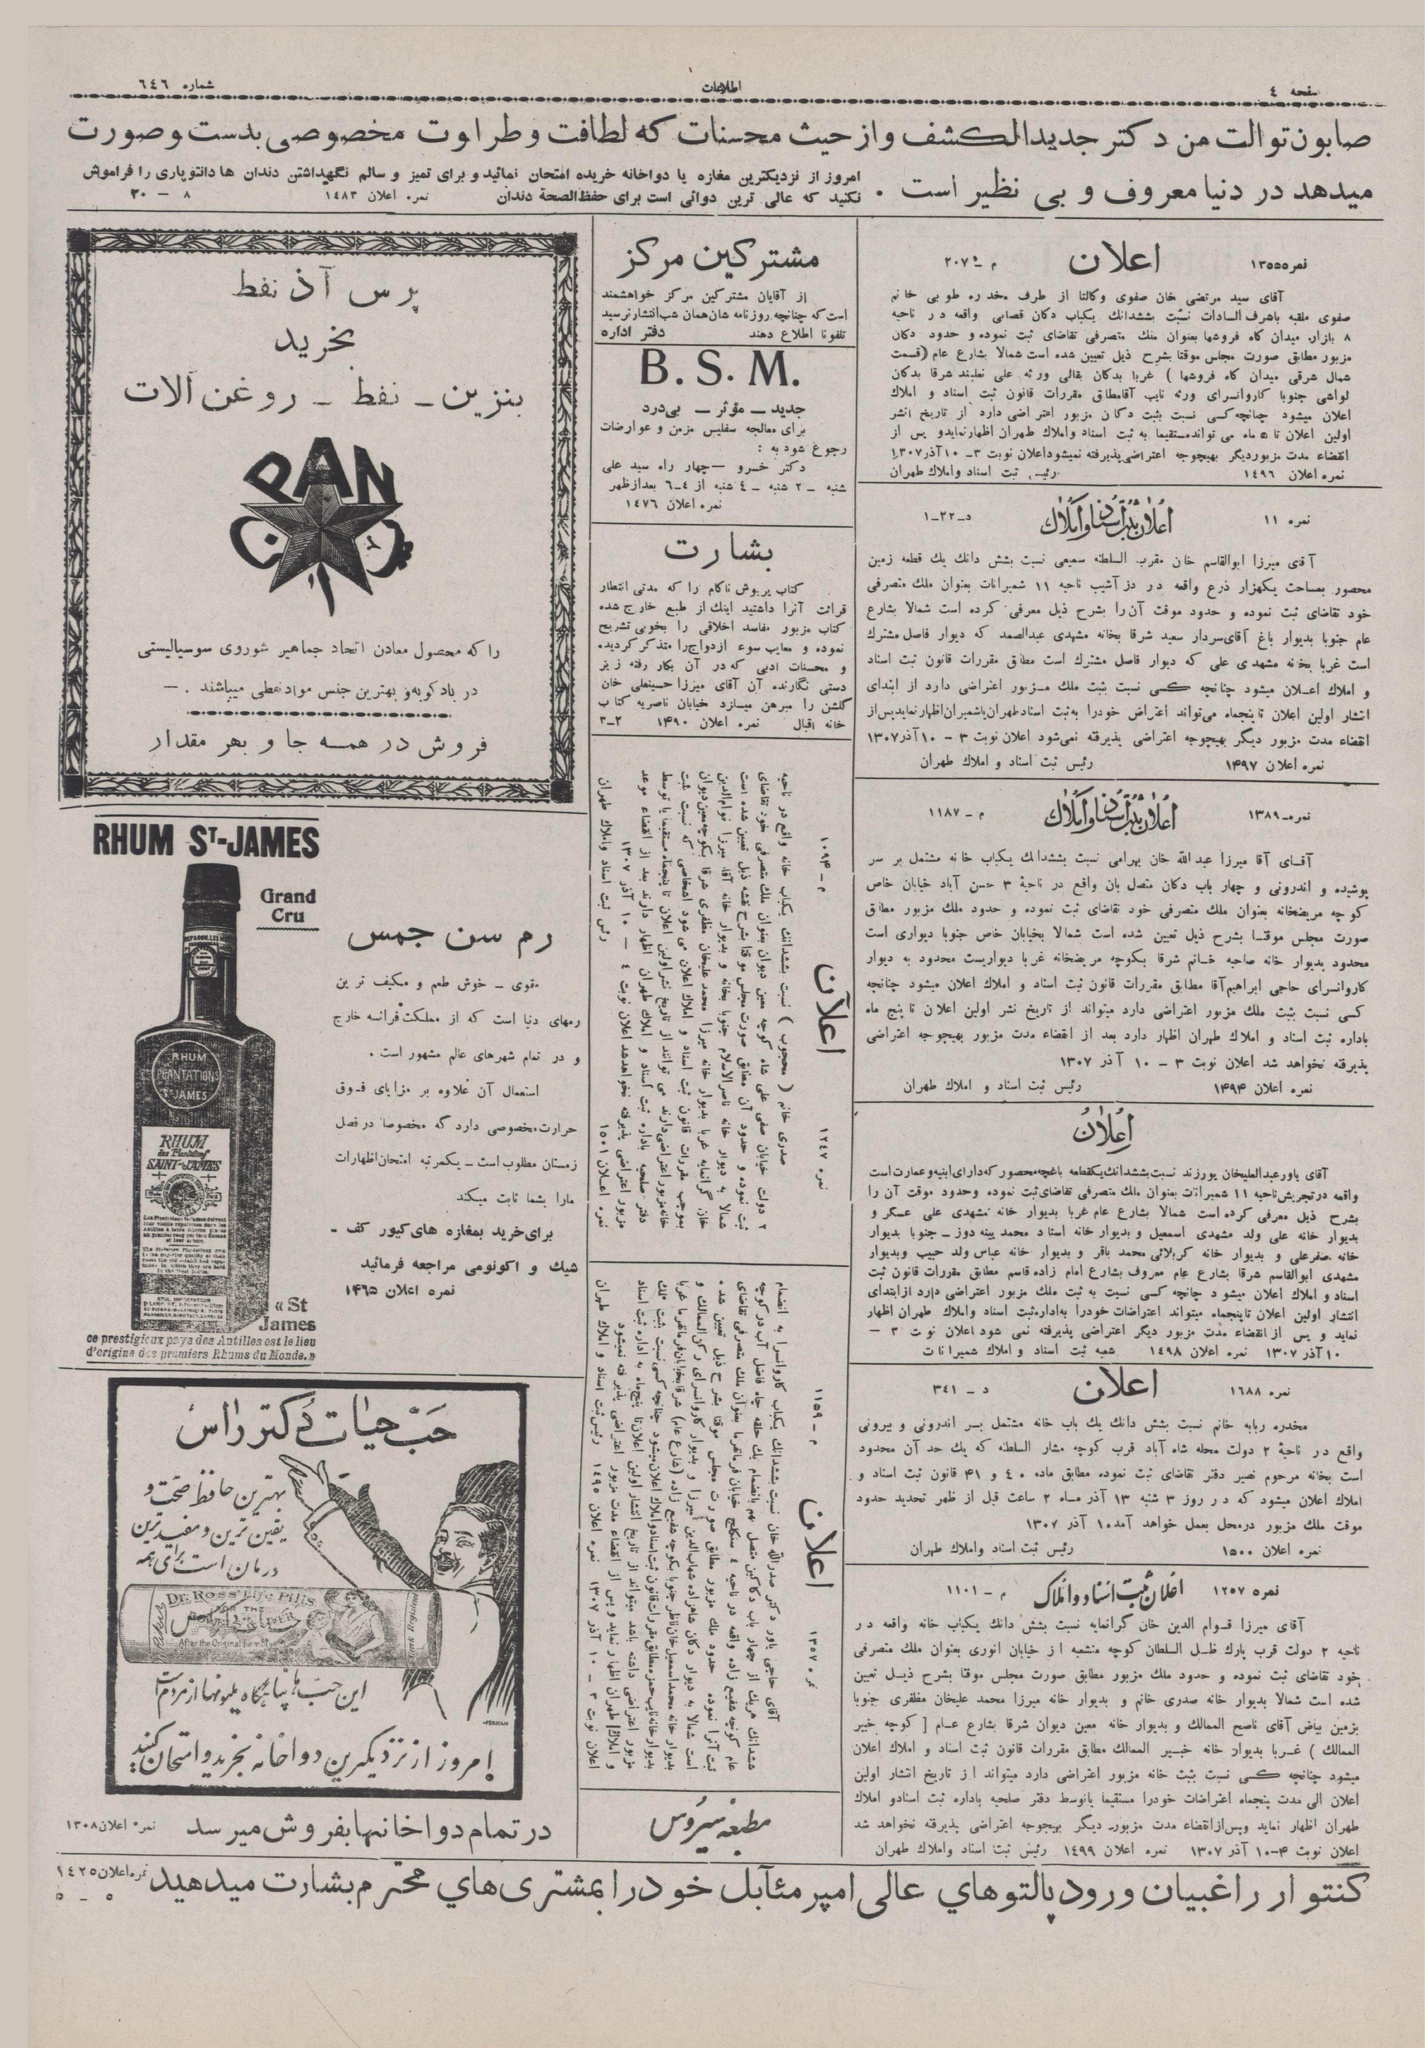 صفحه ٤
اطلاعات
شماره ٦٤٦
صابون توالت من دکتر جدید الکشف و از حیث محسنات که لطافت و طراوت مخصوصی بدست و صورت
میدهد در دنیا معروف و بی نظیر است .
امروز از نزدیکترین مغازه یا دواخانه خریده امتحان نمائید و برای تمیز و سالم نگهداشتن دندان ها دانتوپاری را فراموش
نکنید که عالی ترین دوائی است برای حفظ الصحة دندان نمره اعلان ۱۴۸۳ ۸ — ۲۰
نمره ۱۳۵۵۵ اعلان
آقای سید مرتضی خان صفوی وکالتا از طرف مخدره طوبی خانم
صفوی ملقبه باشرف السادات نسبت بششدانك یکباب دکان قصابی واقعه در ناحیه
۸ بازار میدان کاه فروشها بعنوان ملك متصرفی تقاضای ثبت نموده و حدود دکان
مزبور مطابق صورت مجلس موقتا بشرح ذیل تعیین شده است شمالا بشارع عام (قسمت
شمال شرقی میدان کاه فروشها ) غربا بدکان بقالی ورثه علی نعلبند شرقا بدکان
لواشی جنوبا کاروانسرای ورثه نایب آقا مطابق مقررات قانون ثبت اسناد و املاك
اعلان میشود چنانچه کسی نسبت بثبت دکان مزبور اعتراضی دارد از تاریخ نشر
اولین اعلان تا ۵ ماه می تواند مستقیما به ثبت اسناد واملاك طهران اظهار نماید و پس از
انقضاء مدت مزبور دیگر بهیچوجه اعتراضی پذیرفته نمیشود اعلان نوبت ۳- ۱۰ آذر ۱۳۰۷
نمره اعلان ۱۴۹۶ رئیس ثبت اسناد واملاك طهران
نمره ۱۱ اعلان ثبت اسناد و املاک د-۲۲-۱
آقای میرزا ابوالقاسم خان مقرب السلطنه سمیعی نسبت بشش دانك یك قطعه زمین
محصور بمساحت یکهزار ذرع واقعه در دزآشیب ناحیه ۱۱ شمیرانات بعنوان ملك متصرفی
خود تقاضای ثبت نموده و حدود موقت آن را بشرح ذیل معرفی کرده است شمالا بشارع
عام جنوبا بدیوار باغ آقای سردار سعید شرقا بخانه مشهدی عبدالصمد که دیوار فاصل مشترك
است غربا بخانه مشهدی علی که دیوار فاصل مشترك است مطابق مقررات قانون ثبت اسناد
و املاك اعلان میشود چنانچه کسی نسبت بثبت ملك مزبور اعتراضی دارد از ابتدای
انتشار اولین اعلان تا پنجماه می‌تواند اعتراض خود را به ثبت اسناد طهران یا شمیران اظهار نماید پس از
انقضاء مدت مزبور دیگر بهیچوجه اعتراضی پذیرفته نمی‌شود اعلان نوبت ۳ - ۱۰ آذر ۱۳۰۷
نمره اعلان ۱۴۹۷ رئیس ثبت اسناد و املاك طهران
نمره ۱۳۸۹ اعلان ثبت اسناد و املاک م-۱۱۸۷
آقای آقا میرزا عبدالله خان بهرامی نسبت بششدانك یکباب خانه مشتمل بر سر
پوشیده و اندرونی و چهار باب دکان متصل بان واقع در ناحیهٔ ۳ حسن آباد خیابان خاص
کوچه مریضخانه بعنوان ملك متصرفی خود تقاضای ثبت نموده و حدود ملك مزبور مطابق
صورت مجلس موقتا بشرح ذیل تعیین شده است شمالا بخیابان خاص جنوبا دیواری است
محدود بدیوار خانه صاحبه خانم شرقا بکوچه مریضخانه غربا دیواریست محدود به دیوار
کاروانسرای حاجی ابراهیم آقا مطابق مقررات قانون ثبت اسناد و املاك اعلان میشود چنانچه
کسی نسبت بثبت ملك مزبور اعتراضی دارد میتواند از تاریخ نشر اولین اعلان تا پنج ماه
باداره ثبت اسناد و املاك طهران اظهار دارد بعد از انقضاء مدت مزبور بهیچوجه اعتراضی
پذیرفته نخواهد شد اعلان نوبت ۳ - ۱۰ آذر ۱۳۰۷
نمره اعلان ۱۴۹۴ رئیس ثبت اسناد و املاك طهران
اعلان
آقای یاور عبدالعلیخان پورزند نسبت بششدانك یکقطعه باغچه محصور که دارای ابنیه و عمارت است
واقعه در تجریش ناحیه ۱۱ شمیرانات بعنوان ملك متصرفی تقاضای ثبت نموده وحدود موقت آن را
بشرح ذیل معرفی کرده است شمالا بشارع عام غربا بدیوار خانه مشهدی علی عسکر و
بدیوار خانه علی ولد مشهدی اسمعیل و بدیوار خانه استاد محمد پینه دوز - جنوبا بدیوار
خانه صفرعلی و بدیوار خانه کربلائی محمد باقر و بدیوار خانه عباس ولد حبیب و بدیوار
مشهدی ابوالقاسم شرقا بشارع عام معروف بشارع امام زاده قاسم مطابق مقررات قانون ثبت
اسناد و املاك اعلان میشود چنانچه کسی نسبت به ثبت ملك مزبور اعتراضی دارد از ابتدای
انتشار اولین اعلان تا پنجماه میتواند اعتراضات خود را به اداره ثبت اسناد واملاك طهران اظهار
نماید و پس از انقضاء مدت مزبور دیگر اعتراضی پذیرفته نمی شود اعلان نوبت ۳ -
۱۰ آذر ۱۳۰۷ نمره اعلان ۱۴۹۸ شعبه ثبت اسناد و املاك شمیرانات
نمره ۱۶۸۸ اعلان د - ۳۴۱
مخدره ربابه خانم نسبت بشش دانك یك باب خانه مشتمل بر اندرونی و بیرونی
واقع در ناحیهٔ ۲ دولت محله شاه آباد قرب کوچه مشار السلطنه که یك حد آن محدود
است بخانه مرحوم نصیر دفتر تقاضای ثبت نموده مطابق ماده ٤٠ و ۴۱ قانون ثبت اسناد و
املاك اعلان میشود که در روز ۳ شنبه ۱۳ آذر ماه ۲ ساعت قبل از ظهر تحدید حدود
موقت ملك مزبور در محل بعمل خواهد آمد ۱۰ آذر ۱۳۰۷
نمره اعلان ۱۵۰۰ رئیس ثبت اسناد واملاك طهران
نمره ۱۲۵۷ اعلان ثبت اسناد و املاک م - ۱۱۰۱
آقای میرزا قوام الدین خان گرانمایه نسبت بشش دانك یکباب خانه واقعه در
ناحیه ۲ دولت قرب پارك ظل السلطان کوچه منشعبه از خیابان انوری بعنوان ملك متصرفی
خود تقاضای ثبت نموده و حدود ملك مزبور مطابق صورت مجلس موقتا بشرح ذیل تعیین
شده است شمالا بدیوار خانه صدری خانم و بدیوار خانه میرزا محمد علیخان مظفری جنوبا
بزمین بیاض آقای ناصح الممالك و بدیوار خانه معین دیوان شرقا بشارع عام [ کوچه خبیر
الممالك ) غربا بدیوار خانه خبیر الممالك مطابق مقررات قانون ثبت اسناد و املاك اعلان
میشود چنانچه کسی نسبت بثبت خانه مزبور اعتراضی دارد میتواند از تاریخ انتشار اولین
اعلان الی مدت پنجماه اعتراضات خودرا مستقیما یا توسط دفتر صلحیه باداره ثبت اسناد و املاك
طهران اظهار نماید و پس از انقضاء مدت مزبور دیگر بهیچوجه اعتراضی پذیرفته نخواهد شد
اعلان نوبت ۴-۱۰ آذر ۱۳۰۷ نمره اعلان ۱۴۹۹ رئیس ثبت اسناد و املاك طهران
مشترکین مرکز
از آقایان مشترکین مرکز خواهشمند
است که چنانچه روزنامه شان همان شب انتشار نرسید
تلفونا اطلاع دهند دفتر اداره
B. S. M.
جدید — مؤثر — بی‌درد
برای معالجه سفلیس مزمن و عوارضات
رجوع شود به :
دکتر خسرو — چهار راه سید علی
شنبه - ۲ شنبه - ٤ شنبه از ٤-٦ بعدازظهر
نمره اعلان ۱۴۷۶
بشارت
کتاب پریوش ناکام را که مدتی انتظار
قرائت آنرا داشتید اینك از طبع خارج شده
کتاب مزبور مفاسد اخلاقی را بخوبی تشریح
نموده و معایب سوء ازدواج را متذکر گردیده
و محسنات ادبی که در آن بکار رفته زبر
دستی نگارنده آن آقای میرزا حسینعلی خان
گلشن را مبرهن میسازد خیابان ناصریه کتاب
خانه اقبال نمره اعلان ۱۴۹۰ ۲-۳
نمره ۱۲۴۷ اعلان م - ۱۰۹۴
صدری خانم ( محجوب ) نسبت بششدانك یکباب خانه واقع در ناحیه
۲ دولت خیابان صفی علی شاه کوچه معین دیوان بعنوان ملك متصرفی خود تقاضای
ثبت نموده و حدود آن مطابق صورت مجلس موقتا بشرح نقشه ذیل تعیین شده است
شمالا به دیوار خانه ناصر الاسلام جنوبا بخانه و بدیوار خانه آقا میرزا قوام الدین
خان گرانمایه غربا بدیوار خانه میرزا محمد علیخان مظفری شرقا بکوچه معین دیوان
بموجب مقررات قانون ثبت اسناد و املاك اعلان می شود اشخاصی که نسبت بثبت
خانه مزبور اعتراضی دارند می توانند از تاریخ نشر اولین اعلان تا پنجماه مستقیما یا توسط
دفتر صلحیه باداره ثبت اسناد و املاك طهران اظهار دارند بعد از انقضاء موعد
مزبور اعتراضی پذیرفته نخواهد شد اعلان نوبت ٤ — ۱۰ آذر ۱۳۰۷
نمره اعلان ۱۵۰۱ رئیس ثبت اسناد واملاك طهران
نمره ۱۳۵۷ اعلان م - ۱۱۵۹
آقای حاجی یاور دکتر صدرالله خان نسبت بششدانك یکباب کاروانسرا به انضمام
ششدانك هریك از چهار باب دکاکین متصل بهم بانضمام یك حلقه چاه فاضل آب در کوچه
عام کوچه شفیع زاده واقعه در ناحیه ٤ سنگلج خیابان فرمانفرما بعنوان ملك متصرفی تقاضای
ثبت آنرا نموده حدود ملك مزبور مطابق صورت مجلس موقتا بشرح ذیل تعیین شده
است شمالا به دیوار دکان شاهزاده شهاب الدین میرزا و بدیوار کاروانسرای رکن الممالك و
بدیوار خانه محمد اسمعیل خان ناظر جنوبا بکوچه شفیع زاده (شارع عام) شرقا بخیابان فرمانفرما غربا
بدیوار خانه نایب حمزه مطابق مقررات قانون ثبت اسناد واملاك اعلان میشود چنانچه کسی نسبت بثبت ملك
مزبور اعتراضی داشته باشد میتواند از تاریخ انتشار اولین اعلان تا پنج ماه به اداره ثبت اسناد
و املاك طهران اظهار نماید و پس از انقضاء مدت مزبور اعتراضی پذیرفته نمیشود
اعلان نوبت ۳ - ۱۰ آذر ۱۳۰۷ نمره اعلان ۱۴۹۵ رئیس ثبت اسناد و املاك طهران
مطبعه سیروس
پرس آذ نفط
بخرید
بنزین - نفط - روغن آلات
PAN
را که محصول معادن اتحاد جماهیر شوروی سوسیالیستی
در بادکوبه و بهترین جنس مواد نفطی میباشند . —
فروش در همه جا و بهر مقدار
RHUM ST-JAMES
Grand
Cru
RHUM
PLANTATIONS
ST JAMES
RHUM
des Plantations
SAINT-JAMES
رم سن جمس
مقوی - خوش طعم و مکیف ترین
رمهای دنیا است که از مملکت فرانسه خارج
و در تمام شهرهای عالم مشهور است .
استعمال آن علاوه بر مزایای فوق
حرارت مخصوصی دارد که مخصوصا در فصل
زمستان مطلوب است - یکمرتبه امتحان اظهارات
مارا بشما ثابت میکند
برای خرید بمغازه های کیور کف -
شیك و اکونومی مراجعه فرمائید
نمره اعلان ۱۴۶۵
« St
James
ce prestigieux pays des Antilles est le lieu
d'origine des premiers Rhums du Monde. »
حَبّ حیات دُکتر راس
بهترین حافظ صحت و
یقین ترین و مفیدترین
درمان است برای همه
Dr. Ross' Life Pills
این حَبّ ها پناهگاه ملیونها از مردم است
امروز از نزدیکترین دواخانه بخرید و امتحان کنید
در تمام دواخانها بفروش میرسد نمره اعلان ۱۳۰۸
کنتوار راغبیان ورود پالتوهای عالی امپرمئابل خود را بمشتری‌های محترم بشارت میدهید نمره اعلان ۱٤۲۵
۵ - ۵